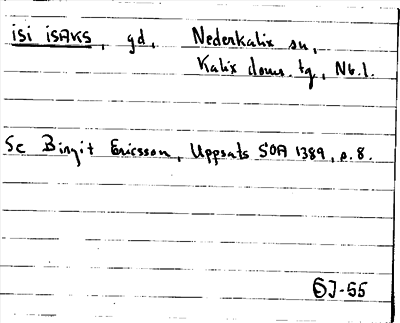 isi isAKS, gd, Nederkalix sn,
Kalix doms. tg, Nb.l.
Se Birgit Ericsson, Uppsats SOA 1389, s. 8.
SJ-55